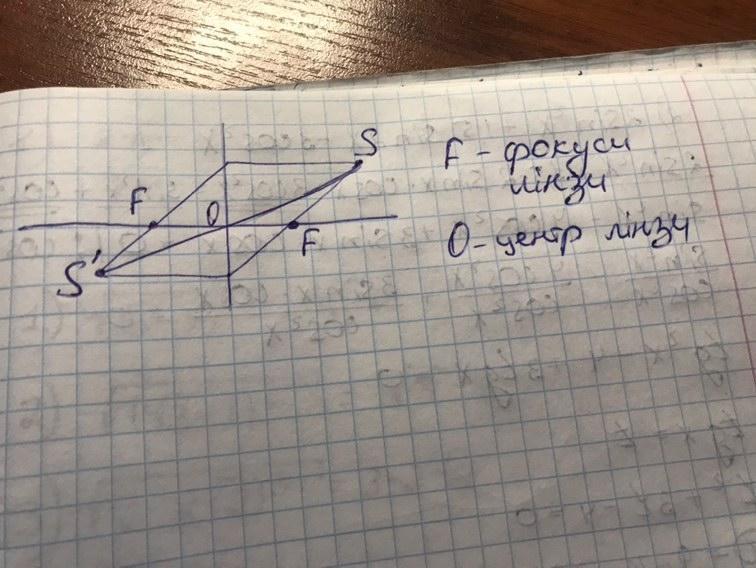 S
F
O
F
S'
F - фокуси
лінзи
O - центр лінзи